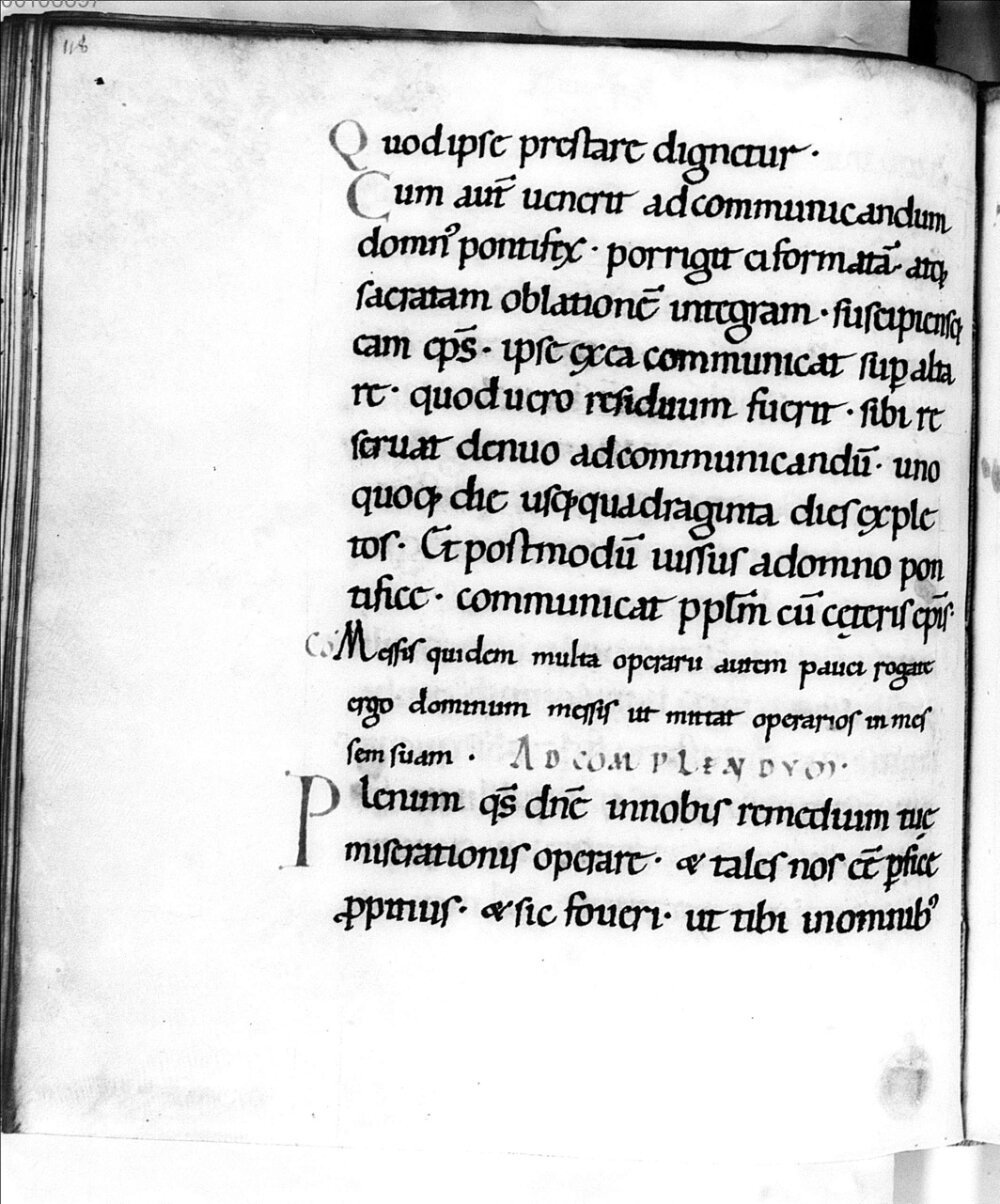 118
Quod ipse prestare dignetur ·
Cum aut̅ uenerit ad communicandum
domn᷒ pontifex · porrigit ei formata̅ · atq;
sacratam oblatione̅ integram · suscipiensq;
eam ep̅s · ipse ex ea communicat sup̲ alta
re · quod uero residuum fuerit · sibi re
seruat denuo ad communicandu̅ · uno
quoq; die usq; quadraginta dies exple
tos · Et postmodu̅ iussus a domno pon
tifice · communicat pplm̅ cu̅ cęteris ep̅is ·
Co Messis quidem multa operarii autem pauci rogate
ergo dominum messis ut mittat operarios in mes
sem suam · AD COMPLENDUM ·
Plenum qs̅ dn̅e in nobis remedium tuę
miserationis operare · & tales nos ee̅ p̲fice
p̲pitius · & sic foueri · ut tibi in omnib᷒